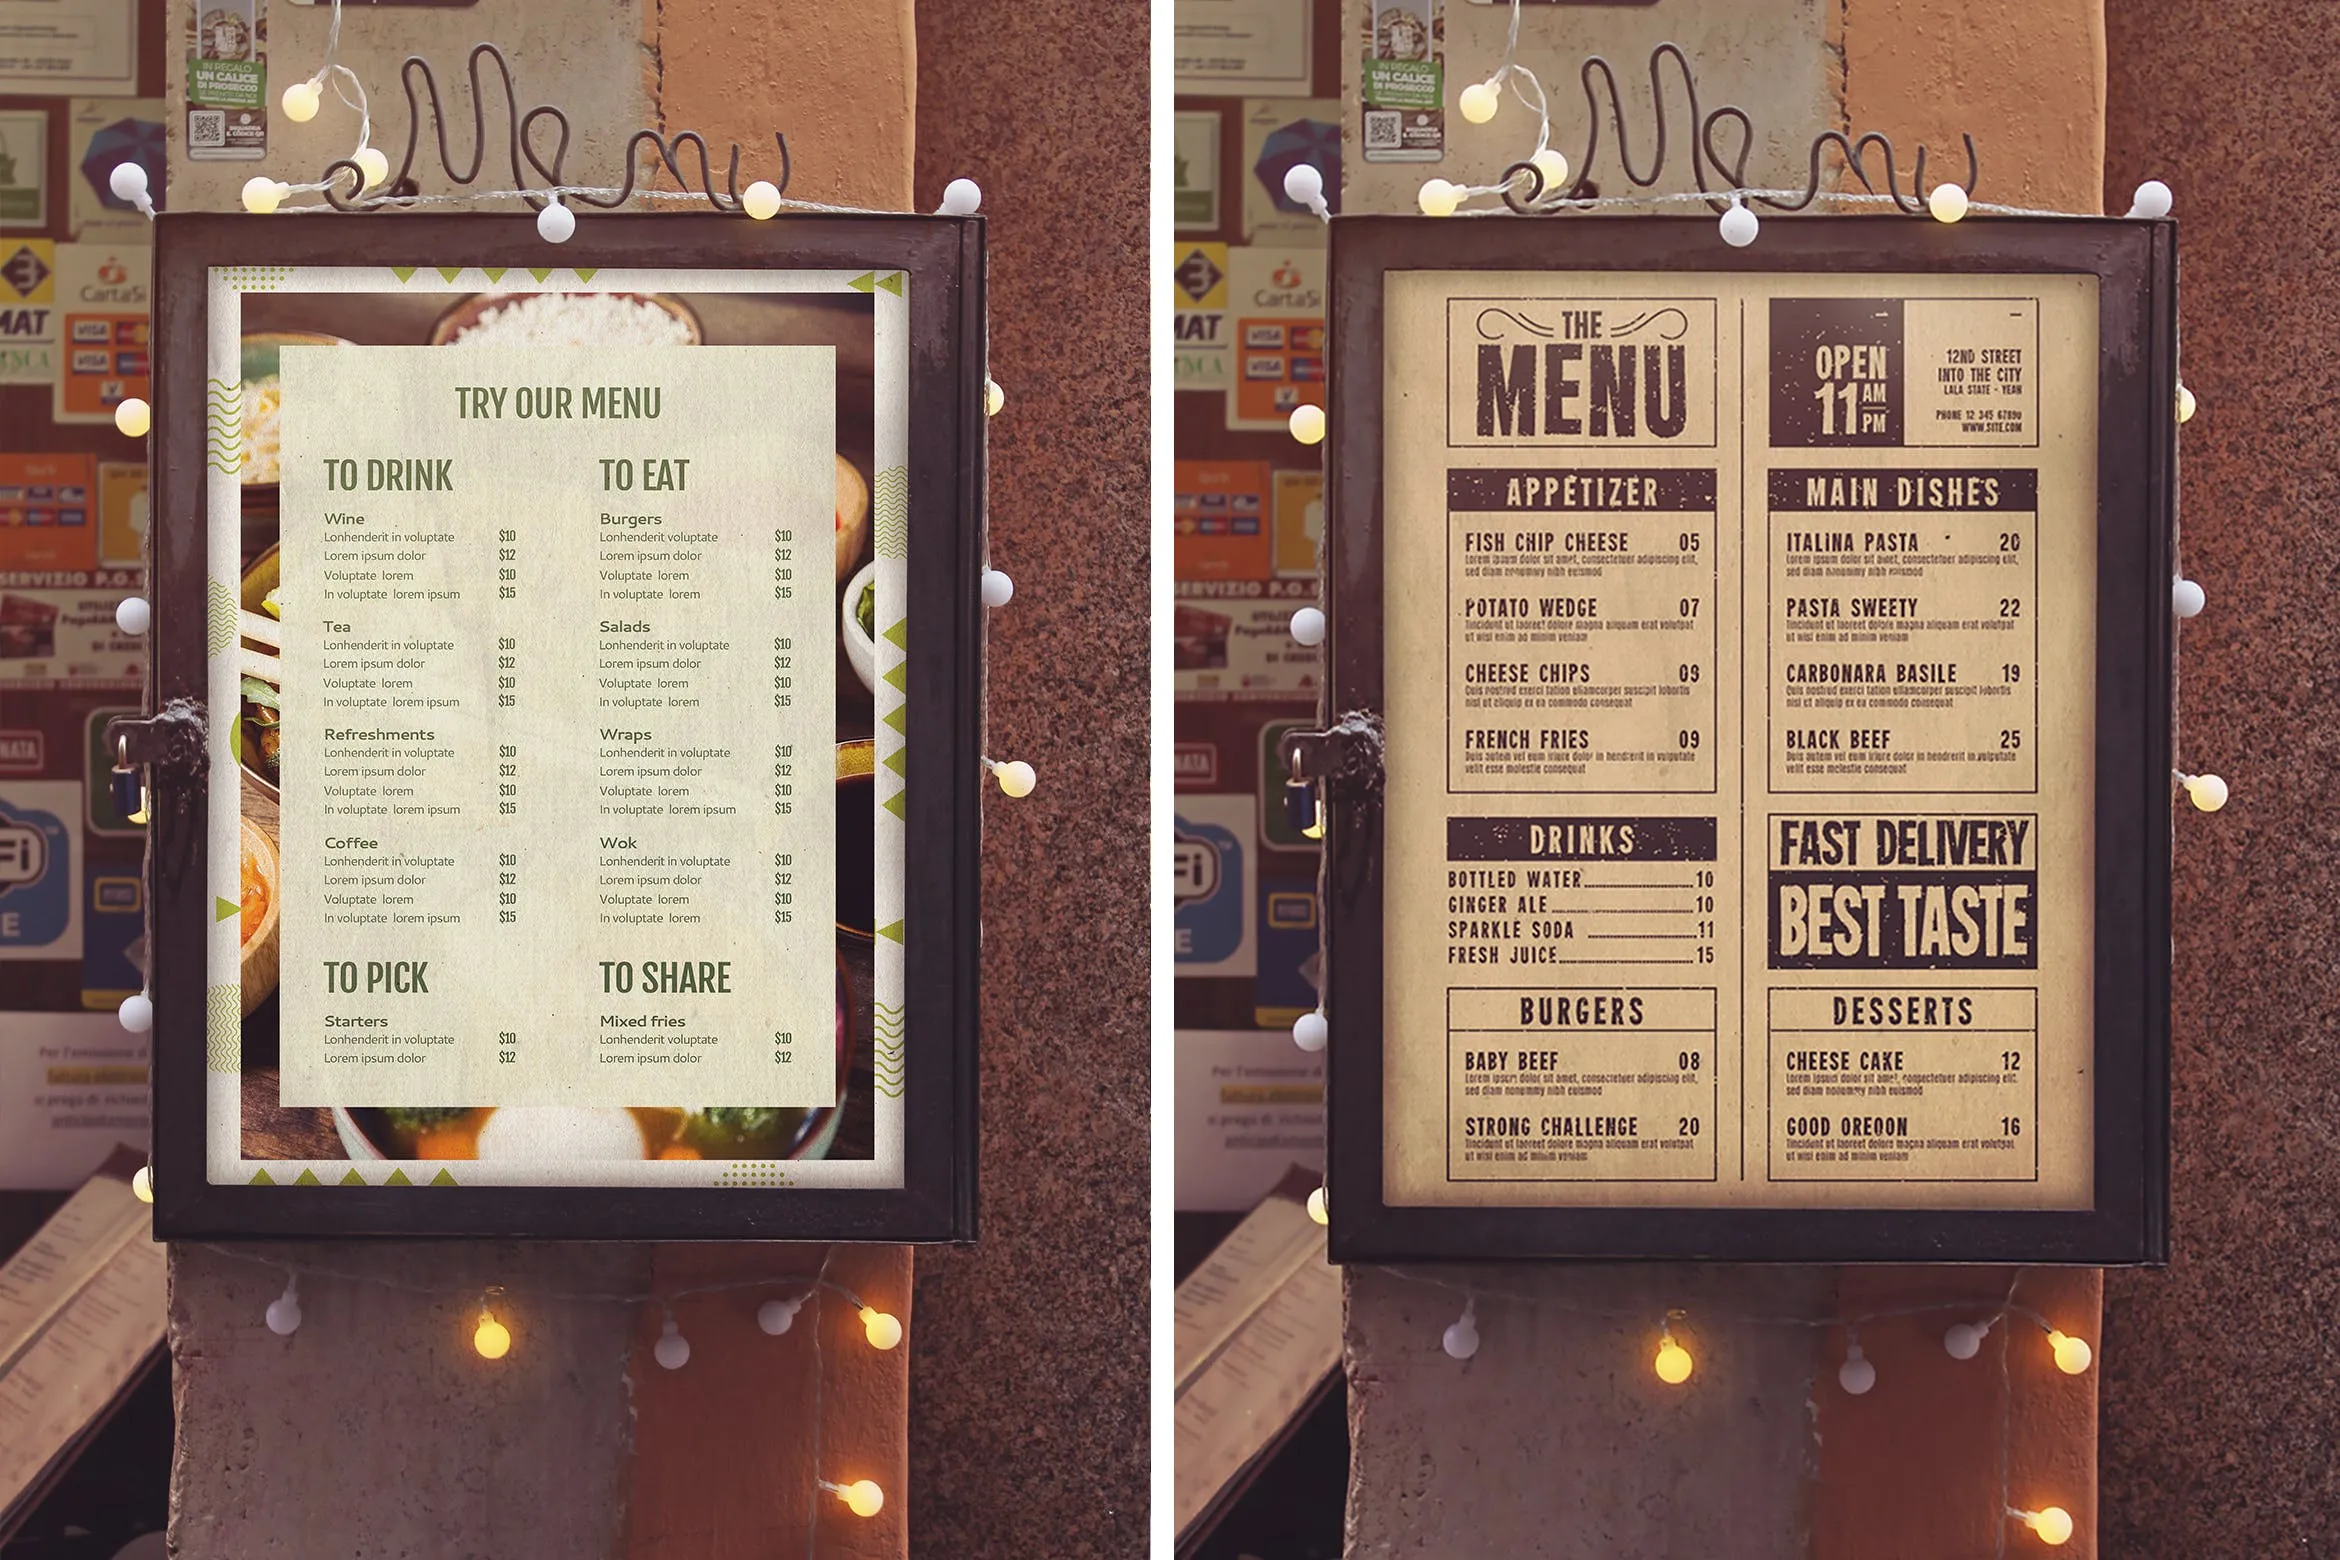 IN REGALO
UN CALICE
DI PROSECCO
Menu
3
CartaSi
MAT
VISA
VISA
V
SERVIZIO P.O.S.
NATA
Fi
E
TRY OUR MENU
TO DRINK
Wine
Lonhenderit in voluptate $10
Lorem ipsum dolor $12
Voluptate lorem $10
In voluptate lorem ipsum $15
Tea
Lonhenderit in voluptate $10
Lorem ipsum dolor $12
Voluptate lorem $10
In voluptate lorem ipsum $15
Refreshments
Lonhenderit in voluptate $10
Lorem ipsum dolor $12
Voluptate lorem $10
In voluptate lorem ipsum $15
Coffee
Lonhenderit in voluptate $10
Lorem ipsum dolor $12
Voluptate lorem $10
In voluptate lorem ipsum $15
TO PICK
Starters
Lonhenderit in voluptate $10
Lorem ipsum dolor $12
TO EAT
Burgers
Lonhenderit voluptate $10
Lorem ipsum dolor $12
Voluptate lorem $10
In voluptate lorem $15
Salads
Lonhenderit in voluptate $10
Lorem ipsum dolor $12
Voluptate lorem $10
In voluptate lorem $15
Wraps
Lonhenderit in voluptate $10
Lorem ipsum dolor $12
Voluptate lorem $10
In voluptate lorem ipsum $15
Wok
Lonhenderit in voluptate $10
Lorem ipsum dolor $12
Voluptate lorem $10
In voluptate lorem $15
TO SHARE
Mixed fries
Lonhenderit voluptate $10
Lorem ipsum dolor $12
IN REGALO
UN CALICE
DI PROSECCO
Menu
3
CartaSi
MAT
VISA
VISA
V
SERVIZIO P.O.S.
NATA
Fi
E
THE
MENU
OPEN
11 AM
PM
12ND STREET
INTO THE CITY
LALA STATE - YEAH
PHONE 12 345 67890
WWW.SITE.COM
APPETIZER
FISH CHIP CHEESE 05
Lorem ipsum dolor sit amet, consectetuer adipiscing elit,
sed diam nonummy nibh euismod
POTATO WEDGE 07
Tincidunt ut laoreet dolore magna aliquam erat volutpat
ut wisi enim ad minim veniam
CHEESE CHIPS 09
Quis nostrud exerci tation ullamcorper suscipit lobortis
nisl ut aliquip ex ea commodo consequat
FRENCH FRIES 09
Duis autem vel eum iriure dolor in hendrerit in vulputate
velit esse molestie consequat
DRINKS
BOTTLED WATER 10
GINGER ALE 10
SPARKLE SODA 11
FRESH JUICE 15
BURGERS
BABY BEEF 08
Lorem ipsum dolor sit amet, consectetuer adipiscing elit,
sed diam nonummy nibh euismod
STRONG CHALLENGE 20
Tincidunt ut laoreet dolore magna aliquam erat volutpat
ut wisi enim ad minim veniam
MAIN DISHES
ITALINA PASTA 20
Lorem ipsum dolor sit amet, consectetuer adipiscing elit,
sed diam nonummy nibh euismod
PASTA SWEETY 22
Tincidunt ut laoreet dolore magna aliquam erat volutpat
ut wisi enim ad minim veniam
CARBONARA BASILE 19
Quis nostrud exerci tation ullamcorper suscipit lobortis
nisl ut aliquip ex ea commodo consequat
BLACK BEEF 25
Duis autem vel eum iriure dolor in hendrerit in vulputate
velit esse molestie consequat
FAST DELIVERY
BEST TASTE
DESSERTS
CHEESE CAKE 12
Lorem ipsum dolor sit amet, consectetuer adipiscing elit,
sed diam nonummy nibh euismod
GOOD OREOON 16
Tincidunt ut laoreet dolore magna aliquam erat volutpat
ut wisi enim ad minim veniam